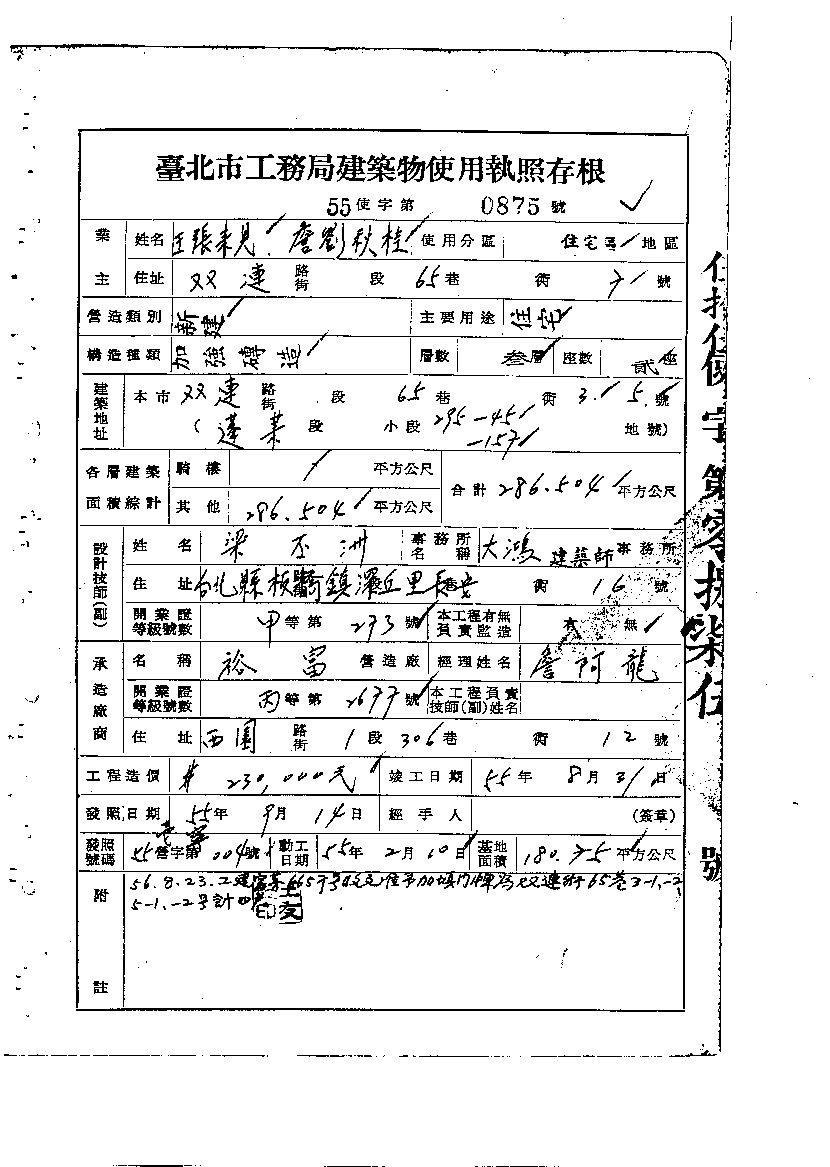 臺北市工務局建築物使用執照存根
55使字第 0875 號
業主 姓名 王張來見 詹劉秋桂 使用分區 住宅 地區
住址 双連 路街 段 65巷 衖 號
營造類別 新建 主要用途 住宅
構造種類 加強磚造 層數 叁層 座數 貳座
建築地址 本市 双連 路街 段 65巷 衖 3. 5. 號
(蓬萊段 小段 295-45 -157 地號)
各層建築面積綜計 騎樓 / 平方公尺 合計 286.504 平方公尺
其他 286.504 平方公尺
設計技師(副) 姓名 梁丕洲 事務所名稱 大鴻建築師事務所
住址 台北縣板橋鎮 里長安 衖 16 號
開業證等級號數 甲等第 273 號 本工程有無負責監造 有 無
承造廠商 名稱 裕富 營造廠 經理姓名 詹阿龍
開業證等級號數 丙等第 2677 號 本工程負責技師(副)姓名
住址 西園 路街 1段 306巷 衖 12號
工程造價 # 230,000元 竣工日期 55年 8月 31日
發照日期 55年 9月 14日 經手人 (簽章)
發照號碼 55營字第 004號 動工日期 55年 2月 10日 基地面積 180.75 平方公尺
附註 56.8.23. 65巷3-1,-2
5-1.-2号計
字第零捌柒伍
號